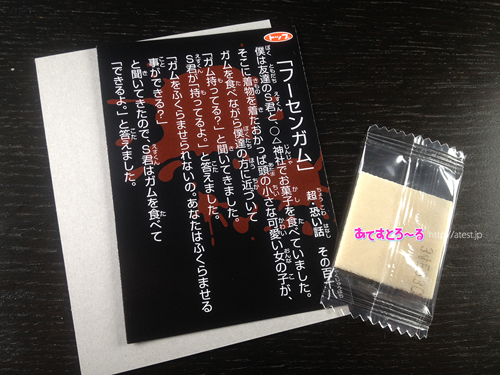 トップ
超・恐い話 その百十八
「フーセンガム」
僕は友達のS君と、○△神社でお菓子を食べていました。
そこに着物を着たおかっぱ頭の小さな可愛い女の子が、
ガムを食べながら僕達の方に近づいて
「ガム持ってる？」と聞いてきました。
S君が「持ってるよ。」と答えました。
「ガムをふくらませられないの。あなたはふくらませる
事ができる？」
と聞いてきたので、S君はガムを食べて
「できるよ。」と答えました。
あてすとろ〜る
http://atest.jp